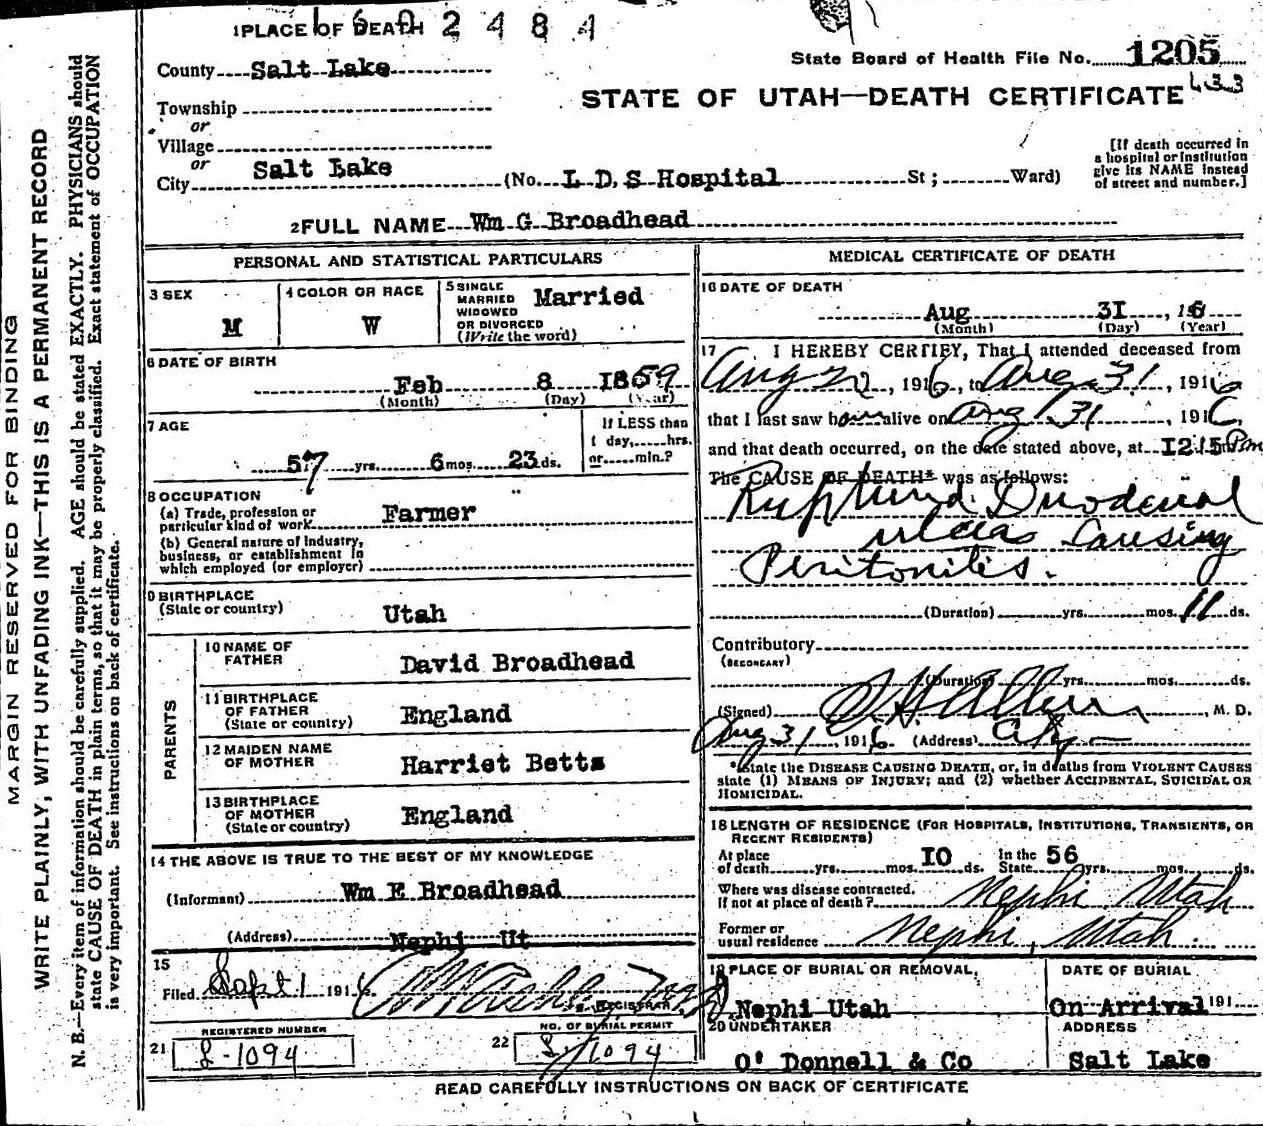 1 PLACE OF DEATH 2 4 8 4
State Board of Health File No. 1205
County Salt Lake
433
STATE OF UTAH—DEATH CERTIFICATE
Township
or
Village
or
City Salt Lake (No. L D S Hospital St; Ward)
[If death occurred in
a hospital or institution
give its NAME instead
of street and number.]
2 FULL NAME Wm G Broadhead
PERSONAL AND STATISTICAL PARTICULARS
3 SEX
M
4 COLOR OR RACE
W
5 SINGLE
MARRIED
WIDOWED
OR DIVORCED
(Write the word)
Married
6 DATE OF BIRTH
Feb 8 1859
(Month) (Day) (Year)
7 AGE
57 yrs. 6 mos. 23 ds.
If LESS than
1 day, hrs.
or min.?
8 OCCUPATION
(a) Trade, profession or
particular kind of work Farmer
(b) General nature of industry,
business, or establishment in
which employed (or employer)
9 BIRTHPLACE
(State or country) Utah
PARENTS
10 NAME OF
FATHER David Broadhead
11 BIRTHPLACE
OF FATHER
(State or country) England
12 MAIDEN NAME
OF MOTHER Harriet Betts
13 BIRTHPLACE
OF MOTHER
(State or country) England
14 THE ABOVE IS TRUE TO THE BEST OF MY KNOWLEDGE
(Informant) Wm E Broadhead
(Address) Nephi Ut
15
Filed Sept 1 1916
REGISTRAR
REGISTERED NUMBER
21 S-1094
NO. OF BURIAL PERMIT
22 S/1094
MEDICAL CERTIFICATE OF DEATH
16 DATE OF DEATH
Aug 31, 1916
(Month) (Day) (Year)
17 I HEREBY CERTIFY, That I attended deceased from
Aug 22, 1916, to Aug 31, 1916
that I last saw him alive on Aug 31 1916,
and that death occurred, on the date stated above, at 1215 Pm
The CAUSE OF DEATH* was as follows:
Ruptured Duodenal
ulcer Causing
Peritonitis.
(Duration) yrs. mos. 11 ds.
Contributory
(SECONDARY)
(Duration) yrs. mos. ds.
(Signed) M. D.
Aug 31, 1916 (Address) City
*State the DISEASE CAUSING DEATH, or, in deaths from VIOLENT CAUSES
state (1) MEANS OF INJURY; and (2) whether ACCIDENTAL, SUICIDAL OR
HOMICIDAL.
18 LENGTH OF RESIDENCE (FOR HOSPITALS, INSTITUTIONS, TRANSIENTS, OR
RECENT RESIDENTS)
At place
of death yrs. mos. 10 ds. In the State 56 yrs. mos. ds.
Where was disease contracted,
if not at place of death? Nephi Utah
Former or
usual residence Nephi, Utah.
19 PLACE OF BURIAL OR REMOVAL,
Nephi Utah
DATE OF BURIAL
On Arrival 191
20 UNDERTAKER
O' Donnell & Co
ADDRESS
Salt Lake
READ CAREFULLY INSTRUCTIONS ON BACK OF CERTIFICATE
MARGIN RESERVED FOR BINDING
WRITE PLAINLY, WITH UNFADING INK—THIS IS A PERMANENT RECORD
N. B.—Every item of information should be carefully supplied. AGE should be stated EXACTLY. PHYSICIANS should
state CAUSE OF DEATH in plain terms, so that it may be properly classified. Exact statement of OCCUPATION
is very important. See instructions on back of certificate.